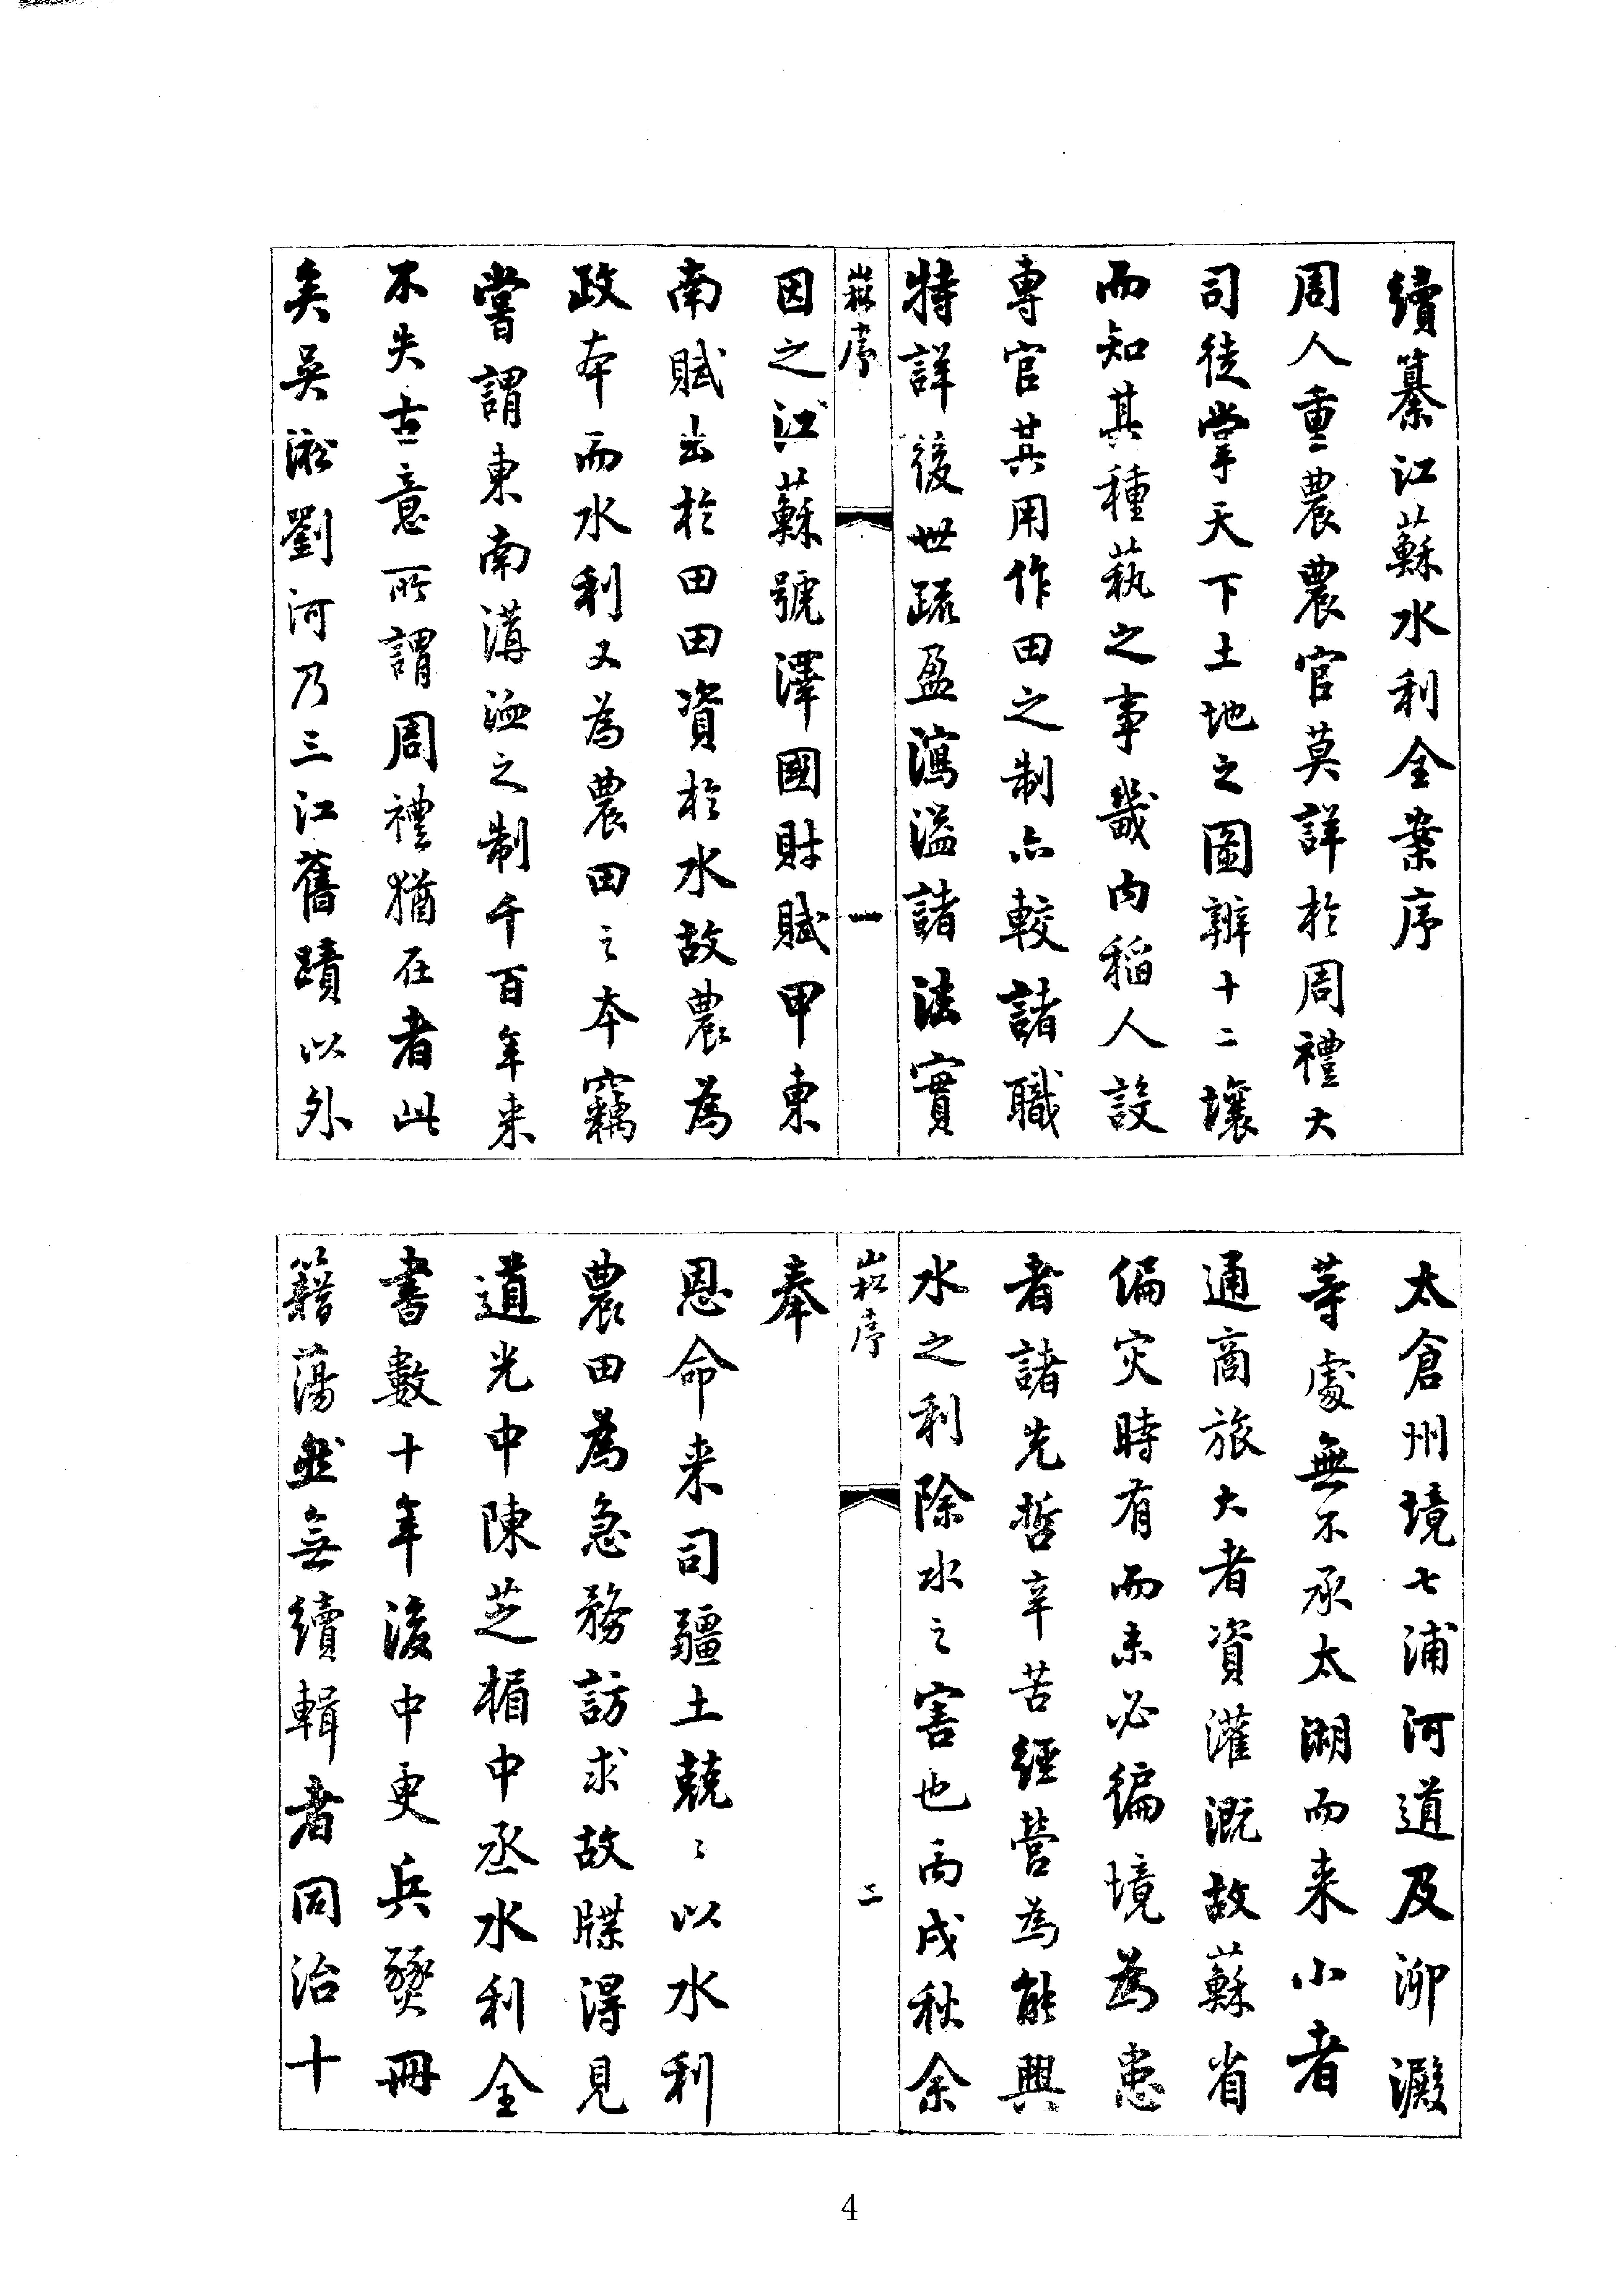 續纂江蘇水利全案序
周人重農農官莫詳於周禮大
司徒掌天下土地之圖辨十二壤
而知其種蓺之事畿内稻人設
專官其用作田之制亦較諸職
特詳後世疏盈瀉溢諸法實
崧序
一
因之江蘇號澤國財賦甲東
南賦出於田田資於水故農為
政本而水利又為農田之本竊
嘗謂東南溝洫之制千百年来
不失古意所謂周禮猶在者此
矣吳淞劉河乃三江舊蹟以外
太倉州境七浦河道及泖澱
等處無不承太湖而来小者
通商旅大者資灌溉故蘇省
偏灾時有而未必徧境為患
者諸先哲辛苦經營為能興
水之利除水之害也丙戌秋余
崧序
二
奉
恩命来司疆土兢〻以水利
農田為急務訪求故牒得見
道光中陳芝楣中丞水利全
書數十年後中更兵燹冊
籍蕩然無續輯者同治十
4